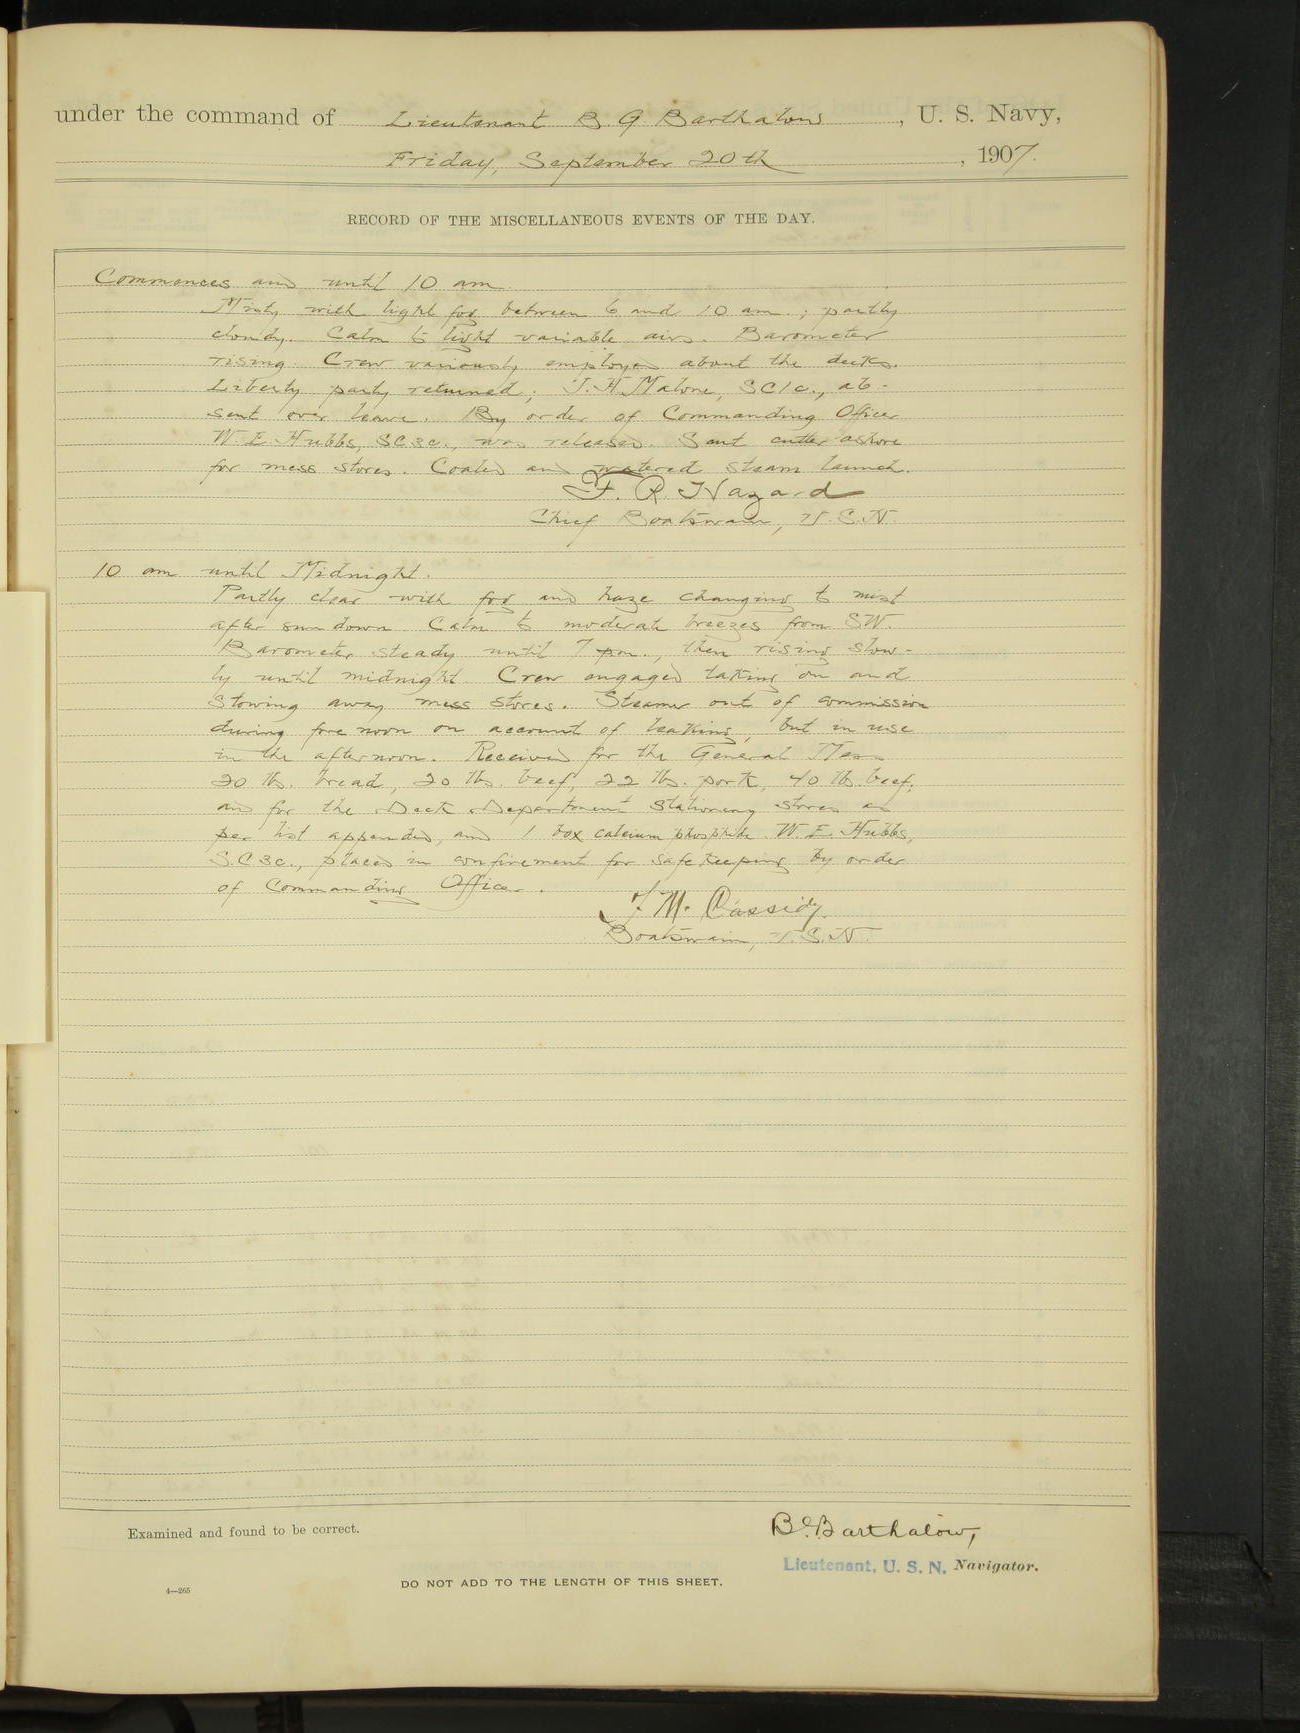 under the command of Lieutenant B. G. Barthalow, U. S. Navy,
Friday, September 20th, 1907.
RECORD OF THE MISCELLANEOUS EVENTS OF THE DAY.
Commences and until 10 am.
Misty with light fog between 6 and 10 am.; partly
cloudy. Calm to light variable airs. Barometer
rising. Crew variously employed about the decks.
Liberty party returned; J. H. Malone, SC1c., ab-
sent over leave. By order of Commanding Officer
W. E. Hubbs, SC3c., was released. Sent cutter ashore
for mess stores. Coaled and watered steam launch.
F. R. Hazard
Chief Boatswain, U.S.N.
10 am until Midnight.
Partly clear with fog and haze changing to mist
after sundown. Calm to moderate breezes from SW.
Barometer steady until 7 pm., then rising slow-
ly until midnight. Crew engaged taking on and
stowing away mess stores. Steamer out of commission
during forenoon on account of leaking, but in use
in the afternoon. Received for the General Mess
20 lbs. bread, 20 lbs. beef, 22 lbs. pork, 40 lbs. beef,
and for the Deck Department Stationery stores as
per list appended, and 1 box calcium phosphide. W. E. Hubbs,
S.C3c., placed in confinement for safe keeping by order
of Commanding Officer.
J. M. Cassidy.
Boatswain, U.S.N.
Examined and found to be correct.
B. G. Barthalow,
Lieutenant, U. S. N. Navigator.
4—265
DO NOT ADD TO THE LENGTH OF THIS SHEET.